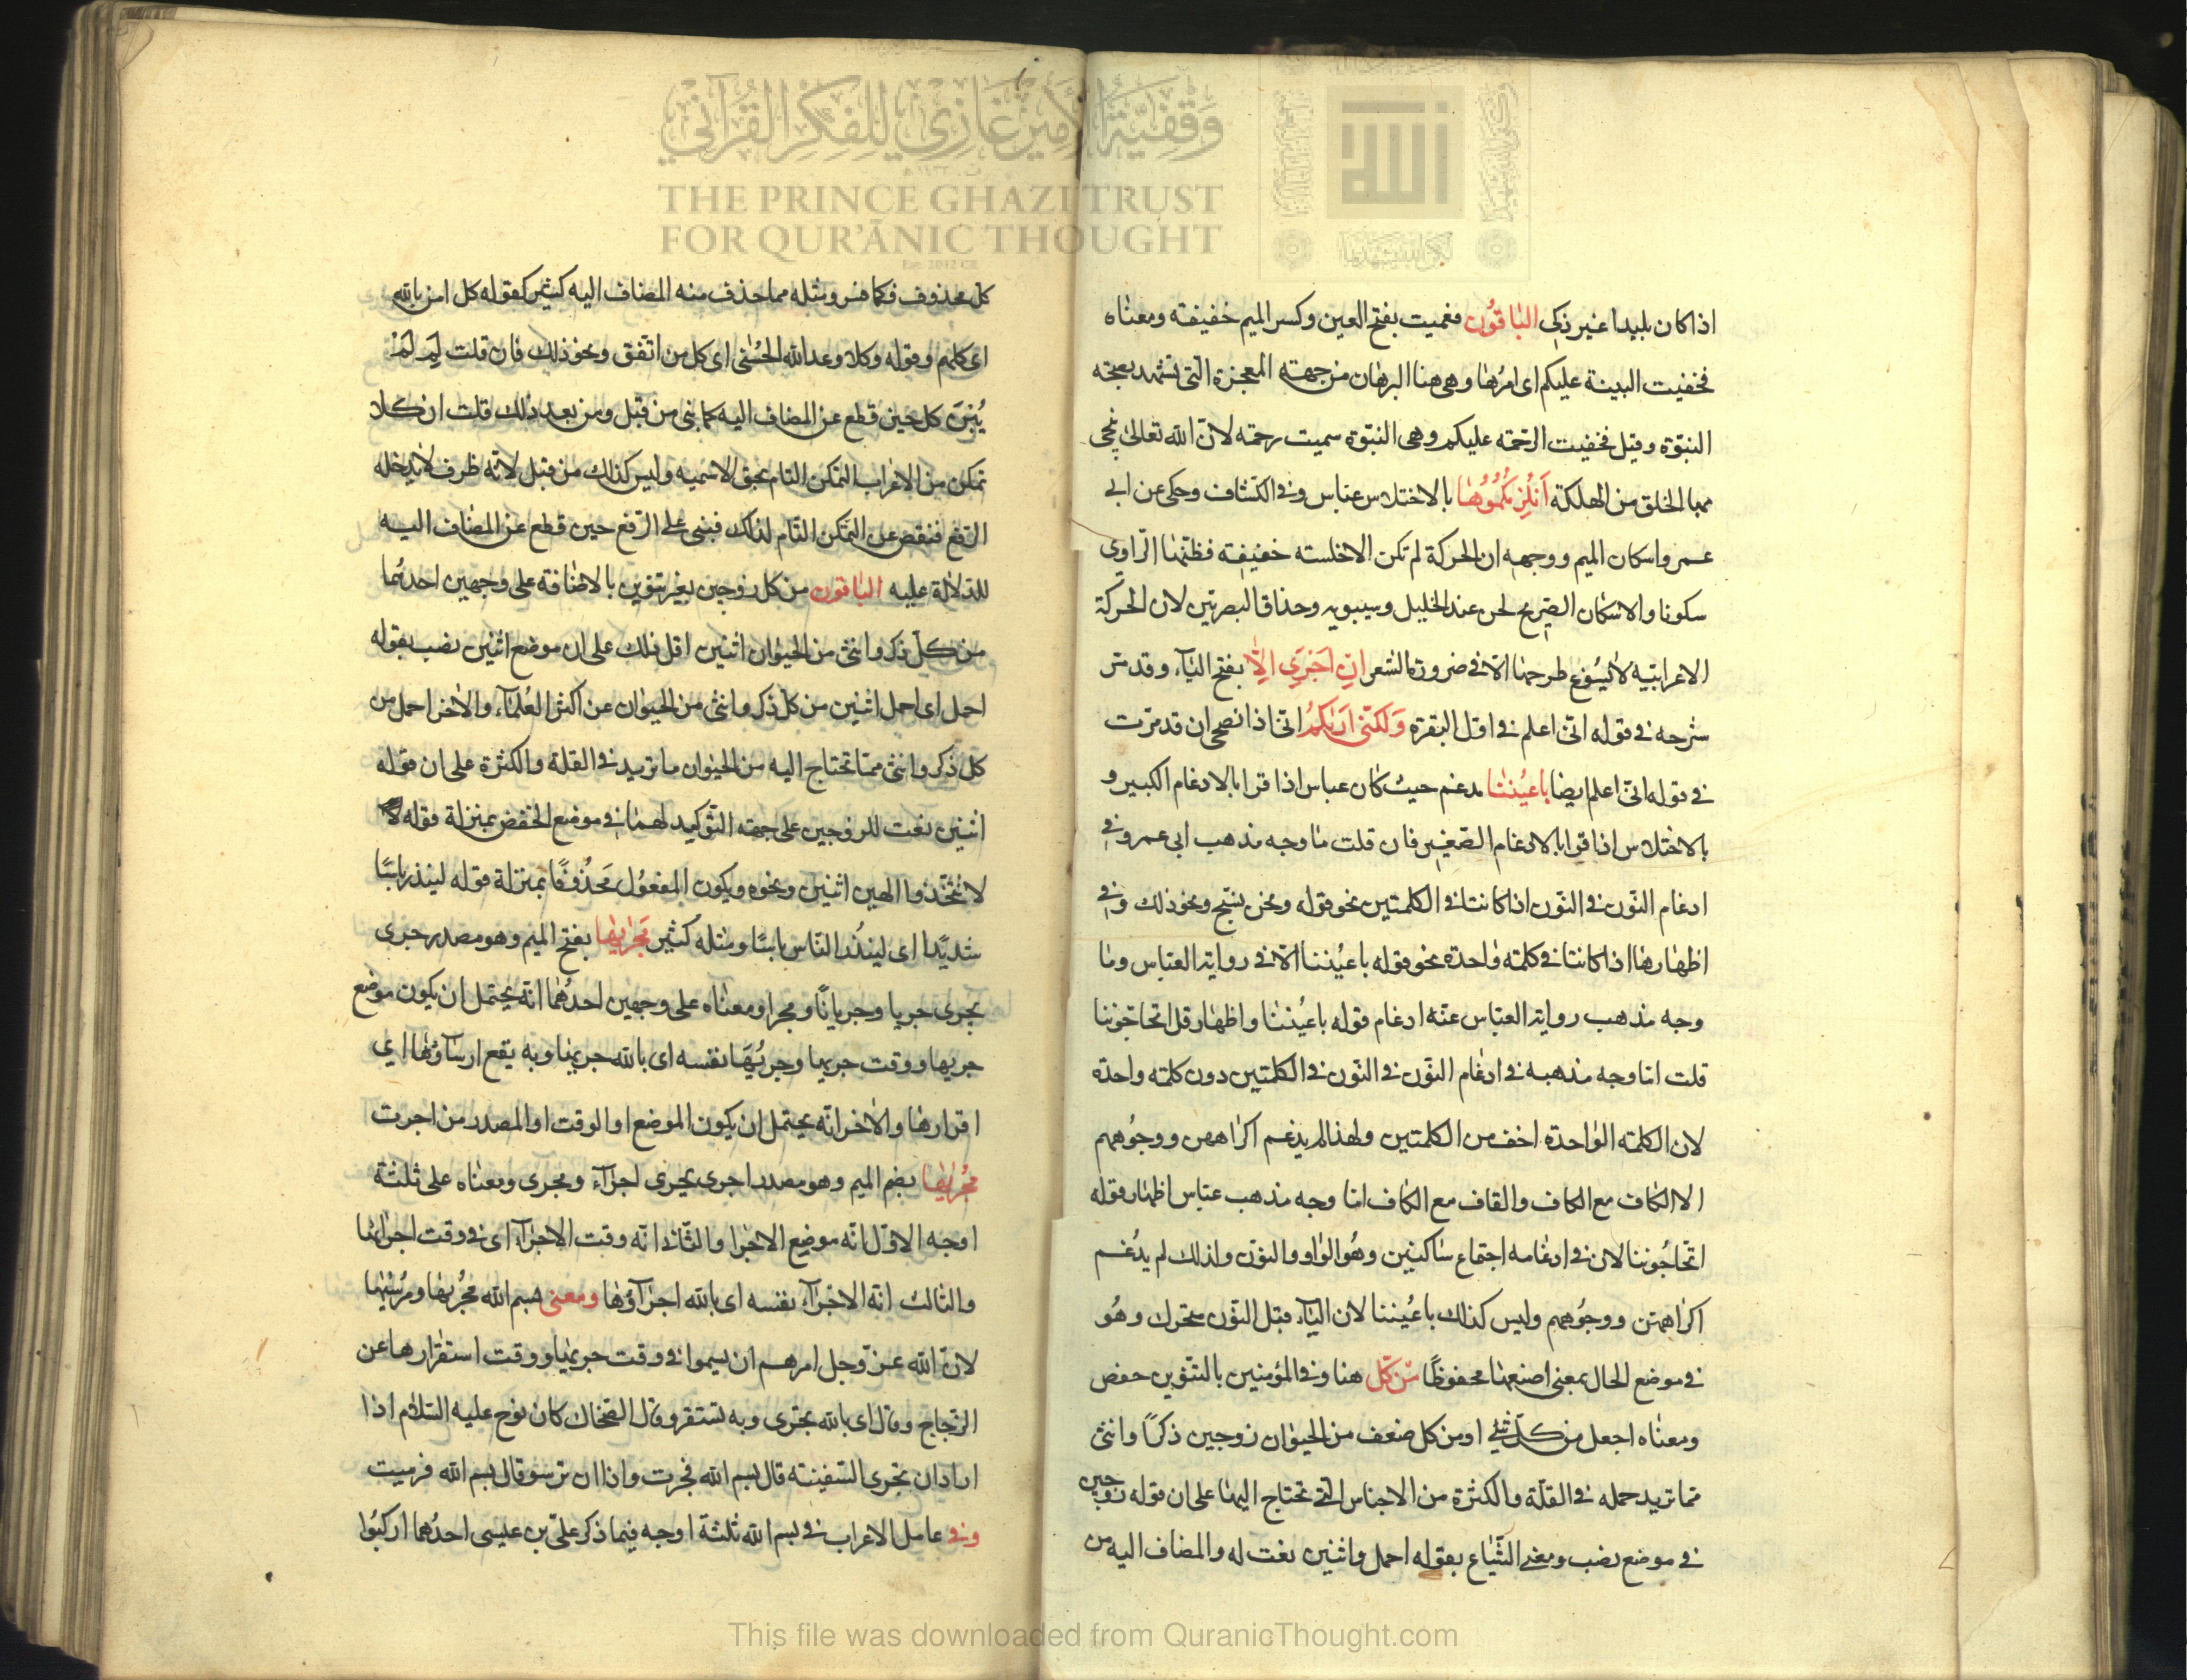 وقفية الأمير غازي للفكر القرآني
THE PRINCE GHAZI TRUST
FOR QUR'ĀNIC THOUGHT
اذا كان بليدا غير ذكى الباقون فعميت بفتح العين وكسر الميم خفيفة ومعناه
فخفيت البينة عليكم اى امرها وهى هنا البرهان من جهة المعجزة التى تشهد بصحة
النبوة وقيل فخفيت الرحمة عليكم وهى النبوة سميت رحمة لان الله تعالى نجى
بها الخلق من الهلكة انلزمكموها بالاختلاس عباس وفى الكشاف وحكى عن ابى
عمرو اسكان الميم ووجهه ان الحركة لم تكن الا خلسة خفيفة فظنها الراوى
سكونا والاسكان الصريح لحن عند الخليل وسيبويه وحذاق البصريين لان الحركة
الاعرابية لا يسوغ طرحها الا فى ضرورة الشعر ان اجرى الا بفتح الياء وقد مر
شرحه فى قوله انى اعلم فى اول البقرة ولكنى اريكم انى اذا نصحى ان قد مرت
فى قوله انى اعلم ايضا باعيننا مدغم حيث كان عباس اذا قرا بالادغام الكبير و
بالاختلاس اذا قرا بالادغام الصغير فان قلت ما وجه مذهب ابى عمرو فى
ادغام النون فى النون اذا كانتا فى الكلمتين نحو قوله ونحن نسبح ونحو ذلك وفى
اظهارها اذا كانتا فى كلمة واحدة نحو قوله باعيننا الا فى رواية العباس وما
وجه مذهب رواية العباس عنه ادغام قوله باعيننا واظهار قل اتحاجوننا
قلت اما وجه مذهبه فى ادغام النون فى النون فى الكلمتين دون كلمة واحدة
لان الكلمة الواحدة اخف من الكلمتين ولهذا لم يدغم اكراههن ووجوههم
الا الكاف مع الكاف والقاف مع الكاف اما وجه مذهب عباس اظهار قوله
اتحاجوننا لان فى ادغامه اجتماع ساكنين وهو الواو والنون ولذلك لم يدغم
اكراههن ووجوههم وليس كذلك باعيننا لان الياء قبل النون متحرك وهو
فى موضع الحال بمعنى اصنعها محفوظا من كل هنا وفى المؤمنين بالتنوين حفص
ومعناه اجعل من كل شئ او من كل صنف من الحيوان زوجين ذكرا وانثى
مما تريد حمله فى القلة والكثرة من الاجناس التى تحتاج اليها على ان قوله زوجين
فى موضع نصب بقوله احمل واثنين نعت له والمضاف اليه من
كل محذوف فكما هنا ومثله مما حذف منه المضاف اليه كثير كقوله كل امن بالله
اى كلهم وقوله وكلا وعد الله الحسنى اى كل من اتفق ونحو ذلك فان قلت لم لم
يبن كل حين قطع عن المضاف اليه كما بنى من قبل ومن بعد ذلك قلت ان كلا
تمكن من الاعراب التمكن التام بحق الاسمية وليس كذلك من قبل لانه ظرف لا يدخله
الرفع فنقص عن التمكن التام لذلك فبنى على الرفع حين قطع عن المضاف اليه
للدلالة عليه الباقون من كل زوجين بغير تنوين بالاضافة على وجهين احدهما
من كل ذكر وانثى من الحيوان اثنين اقل ذلك على ان موضع اثنين نصب بقوله
احمل اى احمل اثنين من كل ذكر وانثى من الحيوان عن اكثر العلماء والاخر احمل من
كل ذكر وانثى مما تحتاج اليه من الحيوان ما تريد فى القلة والكثرة على ان قوله
اثنين نعت للزوجين على جهة التوكيد لهما فى موضع الخفض بمنزلة قوله
لا تتخذوا الهين اثنين ونحوه ويكون المفعول محذوفا بمنزلة قوله لينذر باسا
شديدا اى لينذر الناس باسا ومثله كثير مجريها بفتح الميم وهو مصدر جرى
يجرى جريا وجريانا ومجرا ومعناه على وجهين احدهما انه يحتمل ان يكون موضع
جريها ووقت جريها وجريها نفسه اى بالله جريها وبه يقع ارساؤها اى
اقرارها والاخر انه يحتمل ان يكون الموضع او الوقت او المصدر من اجرت
مجريها بضم الميم وهو مصدر اجرى يجرى اجراء ومجرى ومعناه على ثلثة
اوجه الاول انه موضع الاجرا والثانى انه وقت الاجراء اى فى وقت اجرائها
والثالث انه الاجراء نفسه اى بالله اجراؤها ومعنى بسم الله مجريها ومرسيها
لان الله عز وجل امرهم ان يسموا فى وقت جريها ووقت استقرارها عن
الزجاج وقال اى بالله تجرى وبه تستقر وقال الضحاك كان نوح عليه السلام اذا
اراد ان تجرى السفينة قال بسم الله فجرت واذا ان ترسو قال بسم الله فرسيت
وفى عامل الاعراب فى بسم الله ثلثة اوجه فيما ذكر على بن عيسى احدهما اركبوا
This file was downloaded from QuranicThought.com